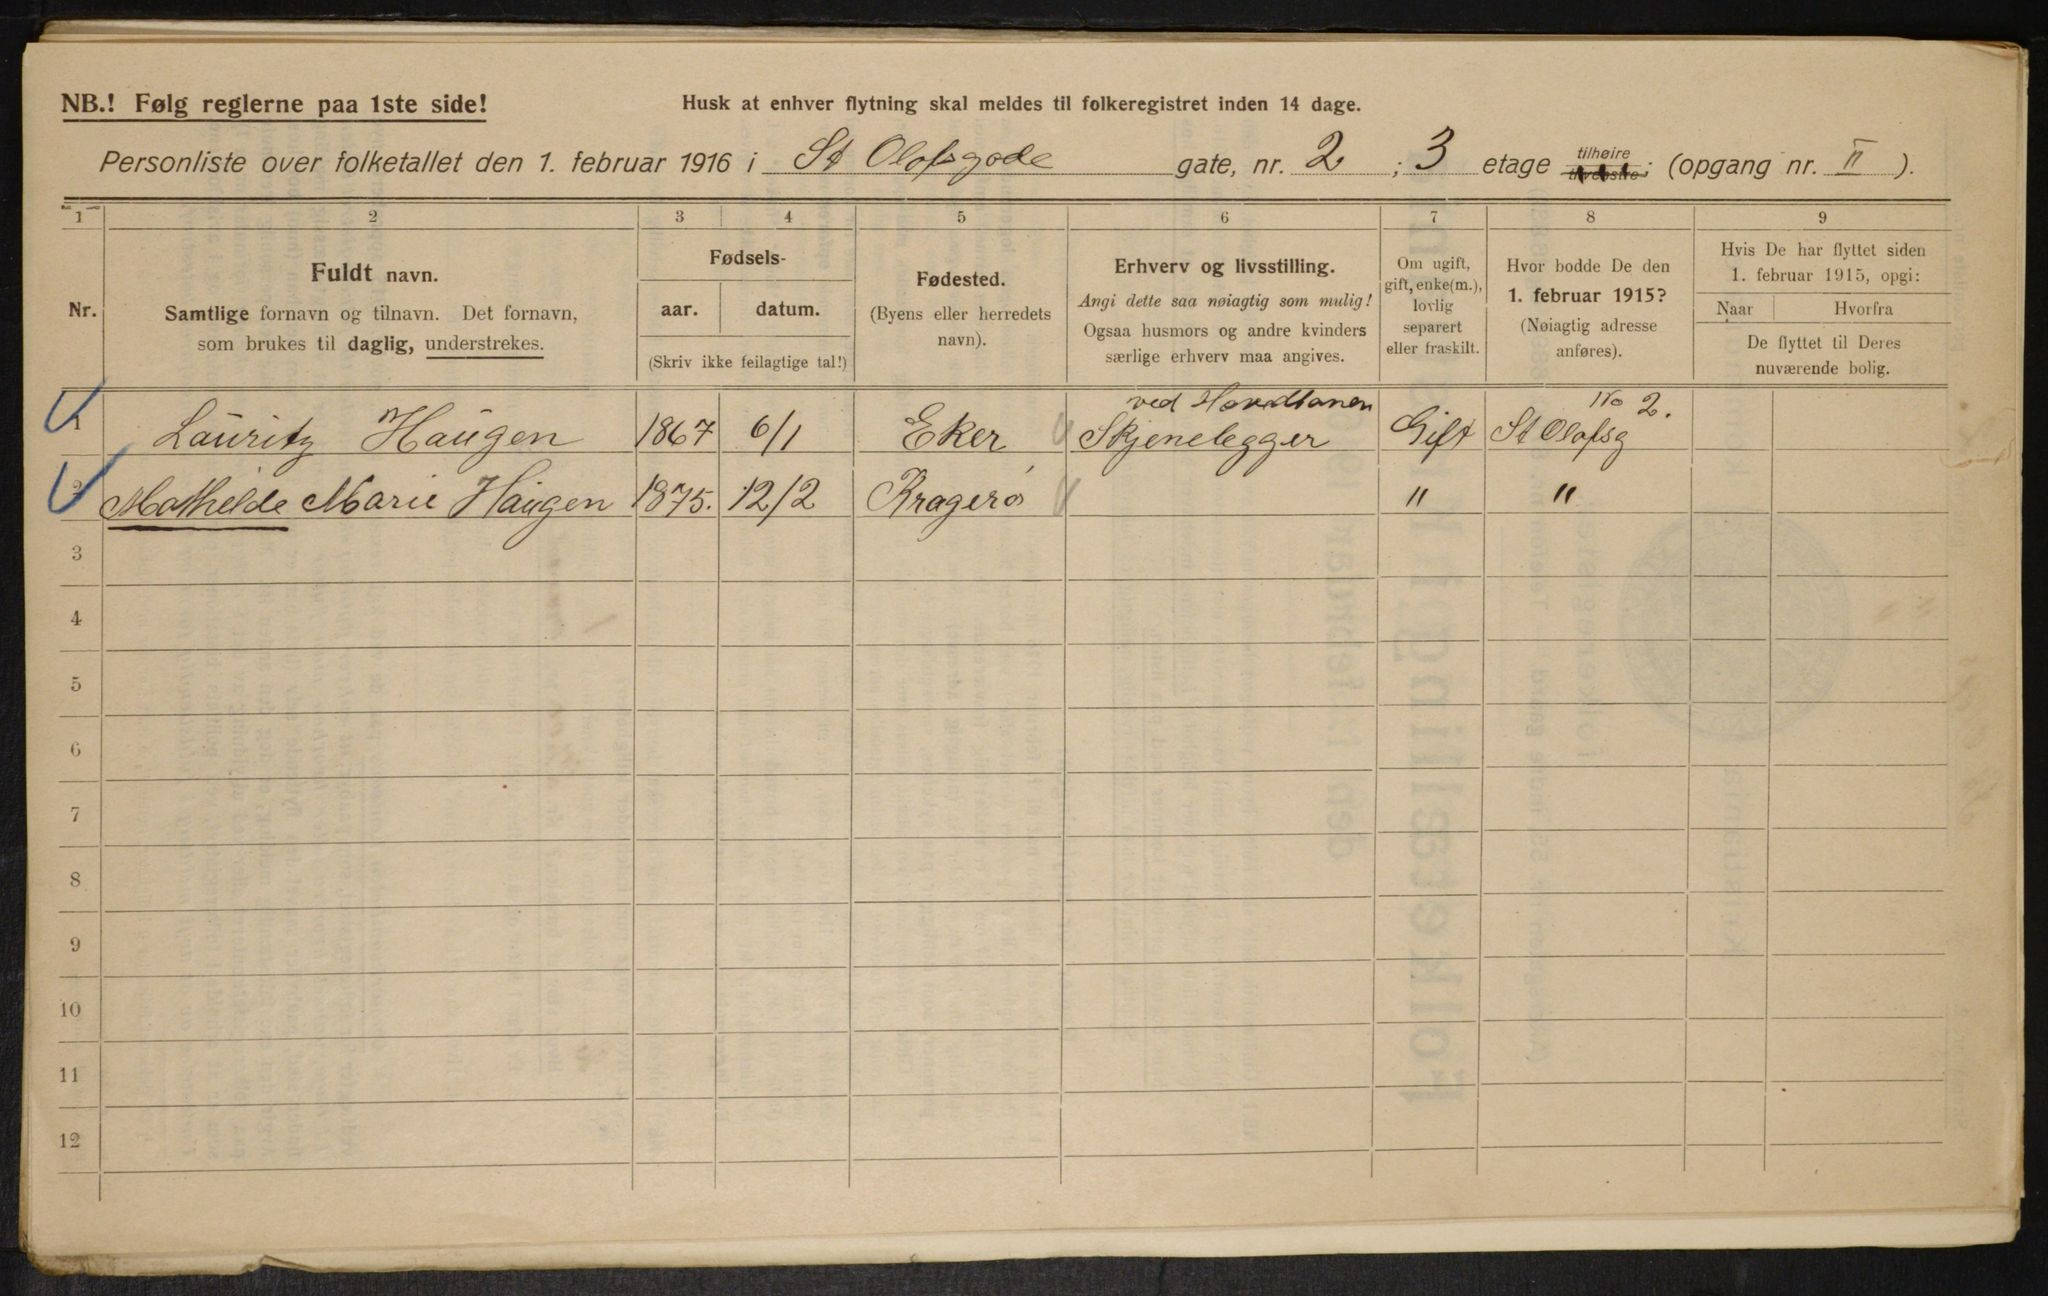 NB.! Følg reglerne paa 1ste side! Husk at enhver flytning skal meldes til folkeregistret inden 14 dage.
Personliste over folketallet den 1. februar 1916 i St Olafsgade gate, nr. 2 ; 3 etage tilhøire tilvenstre; (opgang nr. II ).
1 2 3 4 5 6 7 8 9
Nr.
Fuldt navn.
Samtlige fornavn og tilnavn. Det fornavn,
som brukes til daglig, understrekes.
Fødsels-
aar. datum.
(Skriv ikke feilagtige tal!)
Fødested.
(Byens eller herredets
navn).
Erhverv og livsstilling.
Angi dette saa nøiagtig som mulig!
Ogsaa husmors og andre kvinders
særlige erhverv maa angives.
Om ugift,
gift, enke(m.),
lovlig
separert
eller fraskilt.
Hvor bodde De den
1. februar 1915?
(Nøiagtig adresse
anføres).
Hvis De har flyttet siden
1. februar 1915, opgi:
Naar Hvorfra
De flyttet til Deres
nuværende bolig.
ved Hovedbanen No 2.
1 Lauritz Haugen 1867 6/1 Eker Skjenelegger Gift St Olafsg
2 Mathelde Marie Haugen 1875. 12/2 Kragerø " "
3
4
5
6
7
8
9
10
11
12